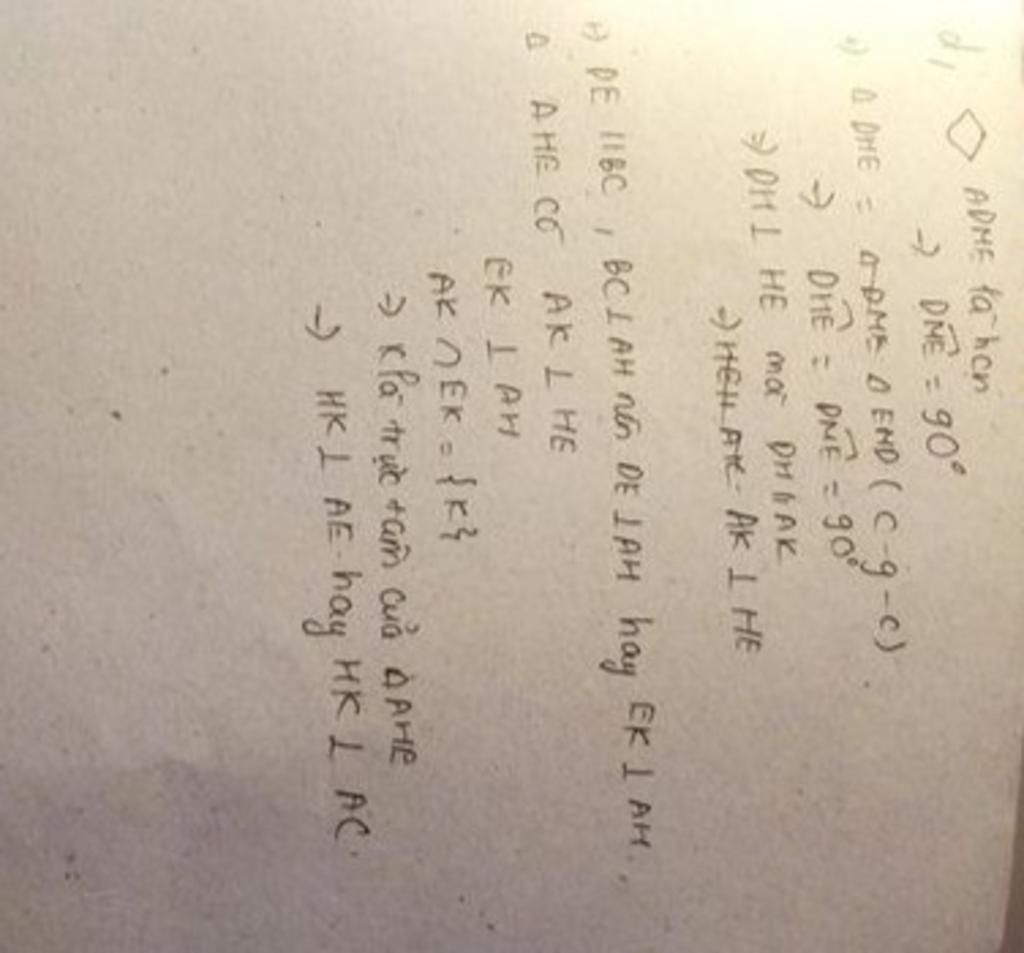 d, ◇ ADME là hcn
→ DME = 90°
+) Δ DHE = Δ END (c-g-c)
→ DHE = DME = 90°
⇒ DH ⊥ HE mà DH // AK
→ AK ⊥ HE
+) DE // BC, BC ⊥ AH nên DE ⊥ AH hay EK ⊥ AH.
Δ AHE có AK ⊥ HE
EK ⊥ AH
AK ∩ EK = {K}
→ K là trực tâm của ΔAHE
→ HK ⊥ AE hay HK ⊥ AC.